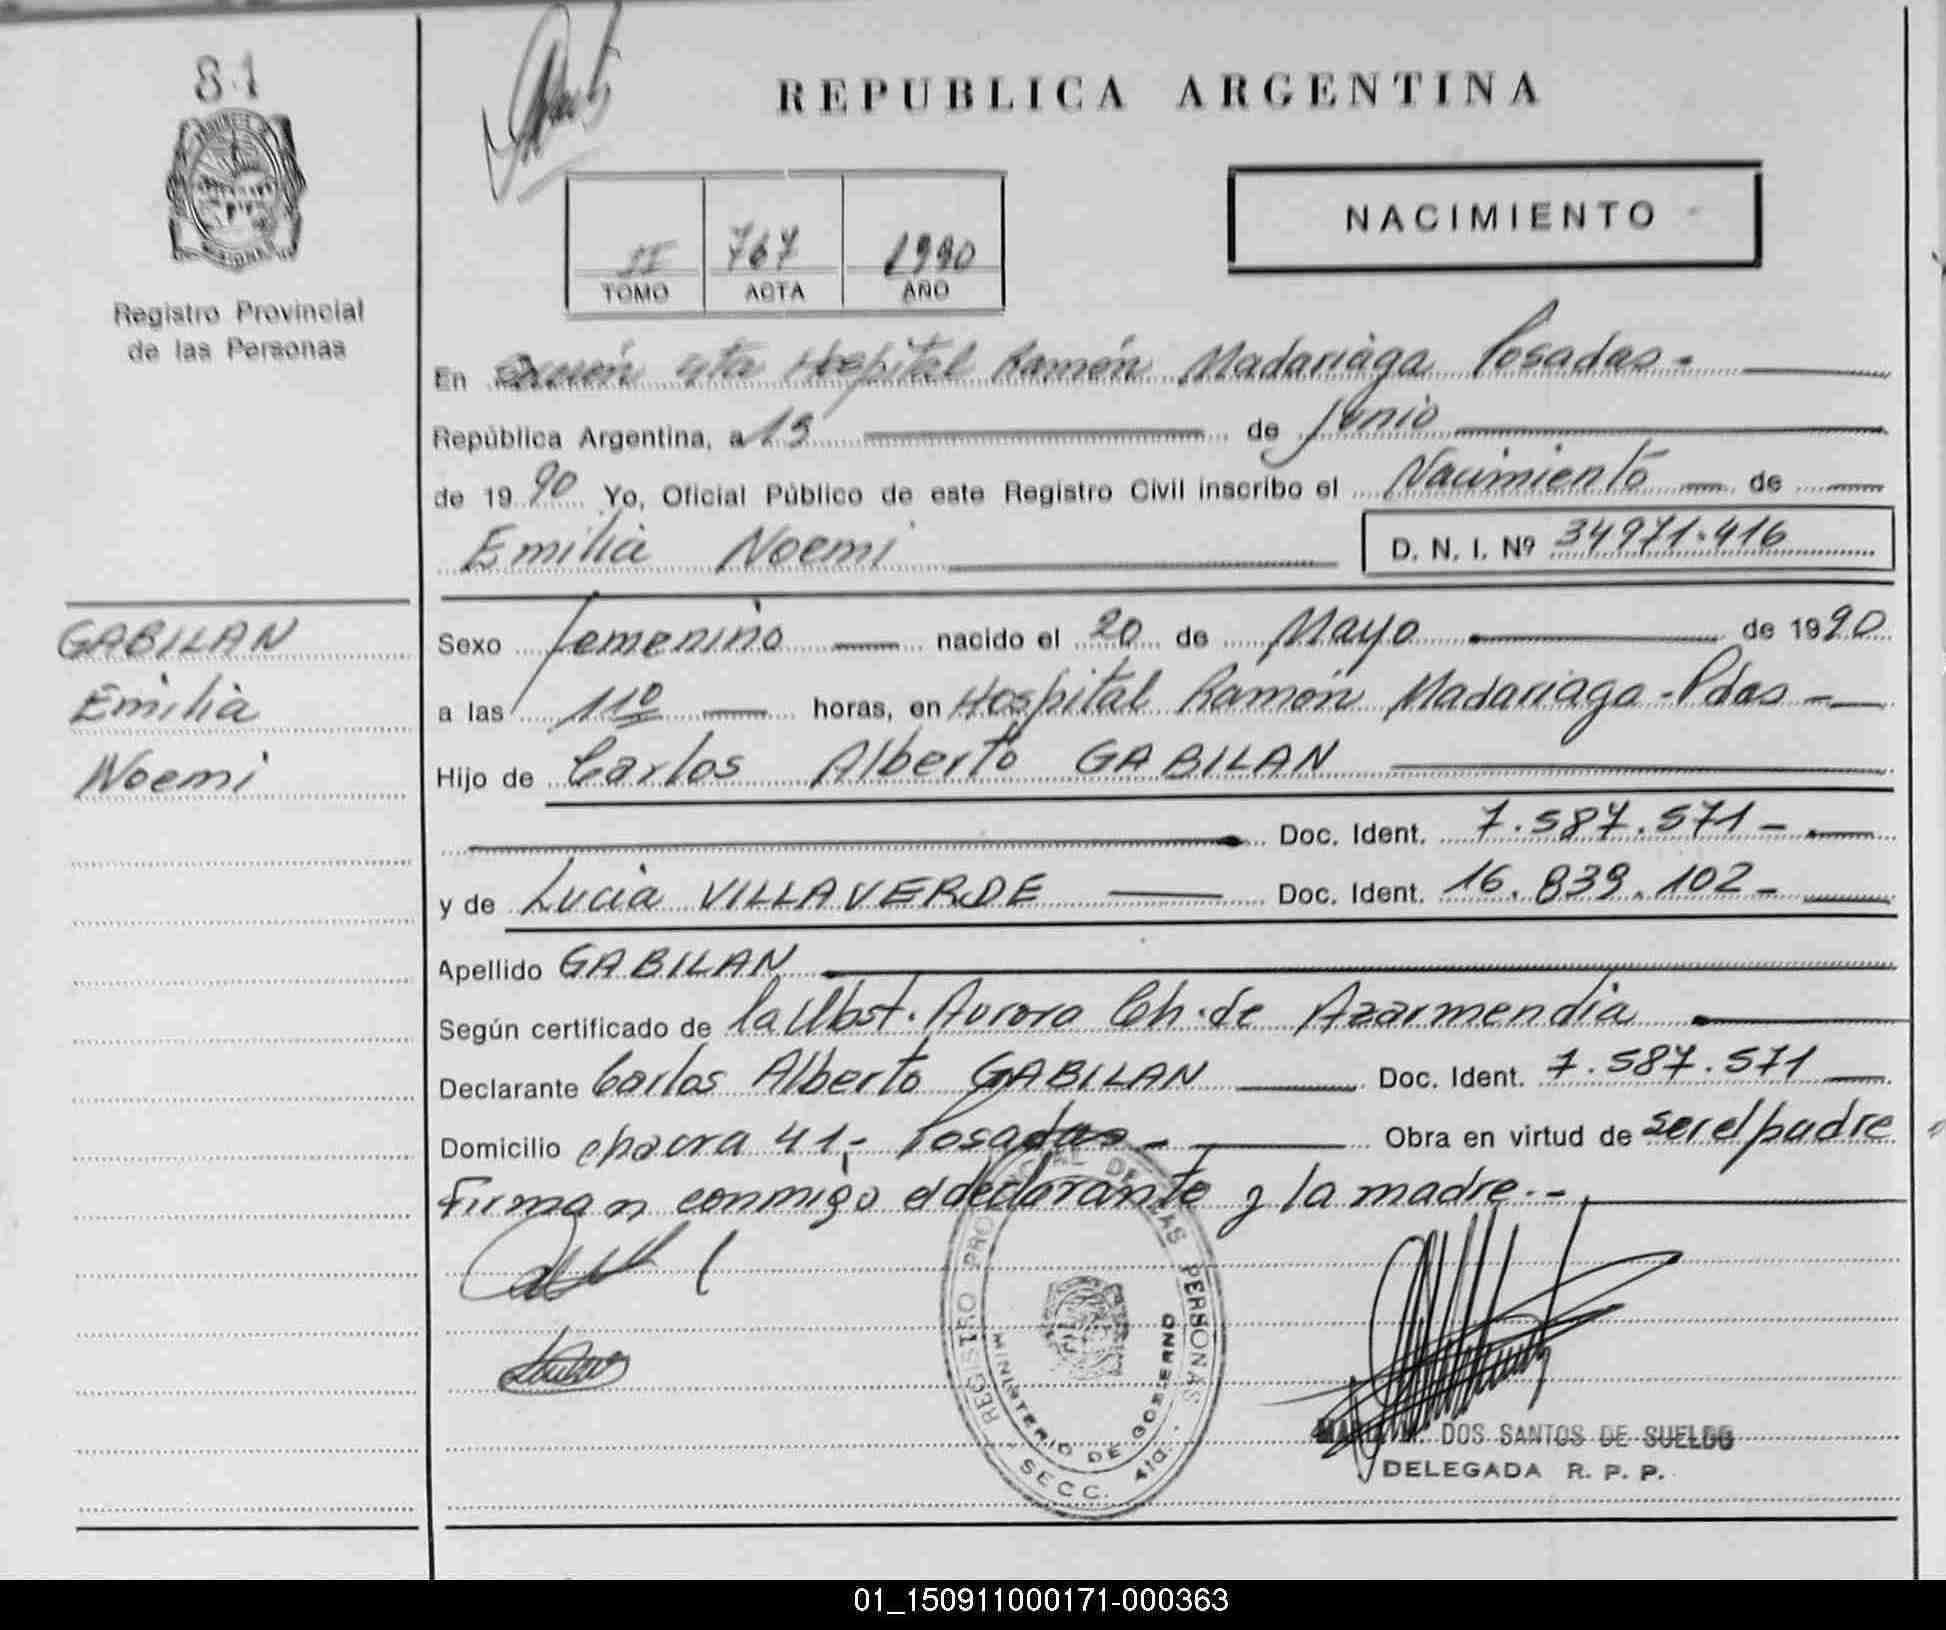 81
REPUBLICA ARGENTINA
NACIMIENTO
II 767 1990
TOMO ACTA AÑO
Registro Provincial
de las Personas
En Sección 4ta Hospital Ramón Madariaga Posadas-
República Argentina, a 19 de Junio
de 1990 Yo, Oficial Público de este Registro Civil inscribo el Nacimiento de
Emilia Noemi D. N. I. Nº 34971.416
GABILAN
Emilia
Noemi
Sexo femenino nacido el 20 de Mayo de 1990
a las 11º horas, en Hospital Ramón Madariaga-Pdas-
Hijo de Carlos Alberto GABILAN
Doc. Ident. 7.587.571-
y de Lucia VILLAVERDE Doc. Ident. 16.839.102-
Apellido GABILAN
Según certificado de la Obst. Aurora Ch. de Azarmendia
Declarante Carlos Alberto GABILAN Doc. Ident. 7.587.571
Domicilio chacra 41,- Posadas- Obra en virtud de ser el padre
Firman conmigo el declarante y la madre.-
REGISTRO PROVINCIAL DE LAS PERSONAS
MINISTERIO DE GOBIERNO
SECC. 4ta.
DOS SANTOS DE SUELDO
DELEGADA R. P. P.
01_150911000171-000363